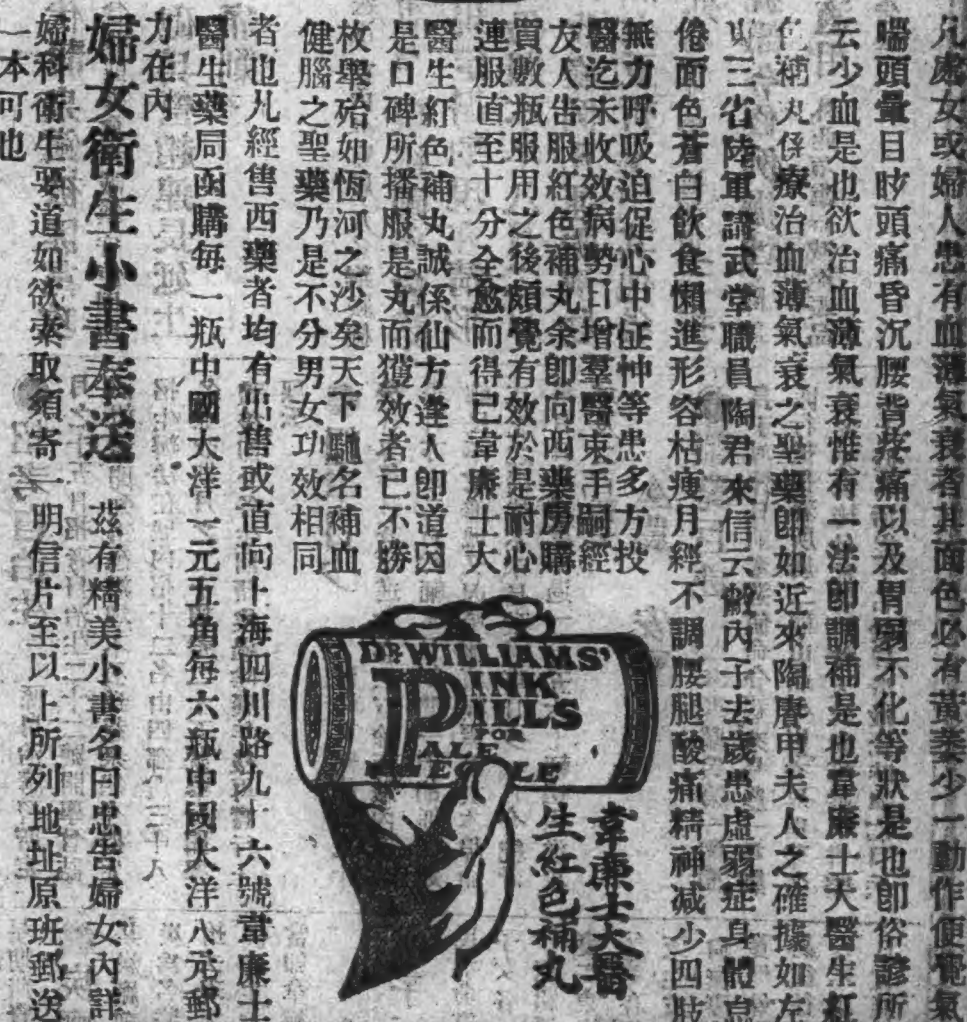 凡處女或婦人患有血薄氣衰者其面色必有黃萎少一動作便覺氣
喘頭暈目眩頭痛昏沉腰背疼痛以及胃弱不化等狀是也卽俗諺所
云少血是也欲治血薄氣衰惟有一法卽調補是也韋廉士大醫生紅
色補丸係療治血薄氣衰之聖藥卽如近來陶賡甲夫人之確據如左
三省陸軍講武堂職員陶君來信云敝內子去歲患虛弱症身體怠
倦面色蒼白飲食懶進形容枯瘦月經不調腰腿酸痛精神減少四肢
無力呼吸迫促心中怔忡等患多方投
醫迄未收效病勢日增羣醫束手嗣經
友人告服紅色補丸余卽向西藥房購
買數瓶服用之後頗覺有效於是耐心
連服直至十分全愈而得已韋廉士大
醫生紅色補丸誠係仙方逢人卽道因
是口碑所播服是丸而獲效者已不勝
枚舉殆如恆河之沙矣天下馳名補血
健腦之聖藥乃是不分男女功效相同
者也凡經售西藥者均有出售或直向上海四川路九十六號韋廉士
醫生藥局函購每一瓶中國大洋一元五角每六瓶中國大洋八元郵
力在內
婦女衛生小書奉送 茲有精美小書名曰忠告婦女內詳
婦科衛生要道如欲索取須寄一明信片至以上所列地址原班郵送
一本可也
DR WILLIAMS'
PINK
PILLS
FOR
PALE
PEOPLE
韋廉士大醫
生紅色補丸